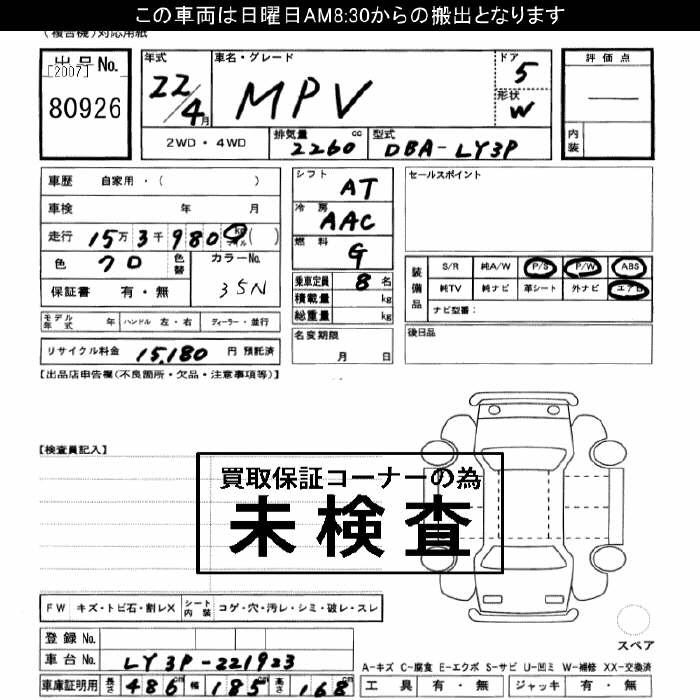 この車両は日曜日AM8:30からの搬出となります
(複合機)対応用紙
出品No.
[2007]
80926
年式
22/4月
車名・グレード
MPV
ドア
5
形状
W
評価点
—
内装
2WD・4WD
排気量 cc
2260
型式
DBA-LY3P
車歴 自家用・( )
車検 年 月
走行 15万3千980
色 クロ
色替
カラーNo.
35N
保証書 有・無
シフト
AT
冷房
AAC
燃料
G
乗車定員 8名
積載量 kg
総重量 kg
名変期限
月 日
セールスポイント
装備品
S/R 純A/W P/S P/W ABS
純TV 純ナビ 革シート 外ナビ エアB
ナビ型番:
後日品
モデル年式 年 ハンドル 左・右 ディーラー・並行
リサイクル料金 15,180 円 預託済
【出品店申告欄(不良箇所・欠品・注意事項等)】
【検査員記入】
買取保証コーナーの為
未検査
FW キズ・トビ石・割レX シート内装 コゲ・穴・汚レ・シミ・破レ・スレ
登録No.
車台No. LY3P-221923
車庫証明用 長さ 486cm 幅 185cm 高さ 168cm
スペア
A-キズ C-腐食 E-エクボ S-サビ U-凹ミ W-補修 XX-交換済
工具 有・無 ジャッキ 有・無